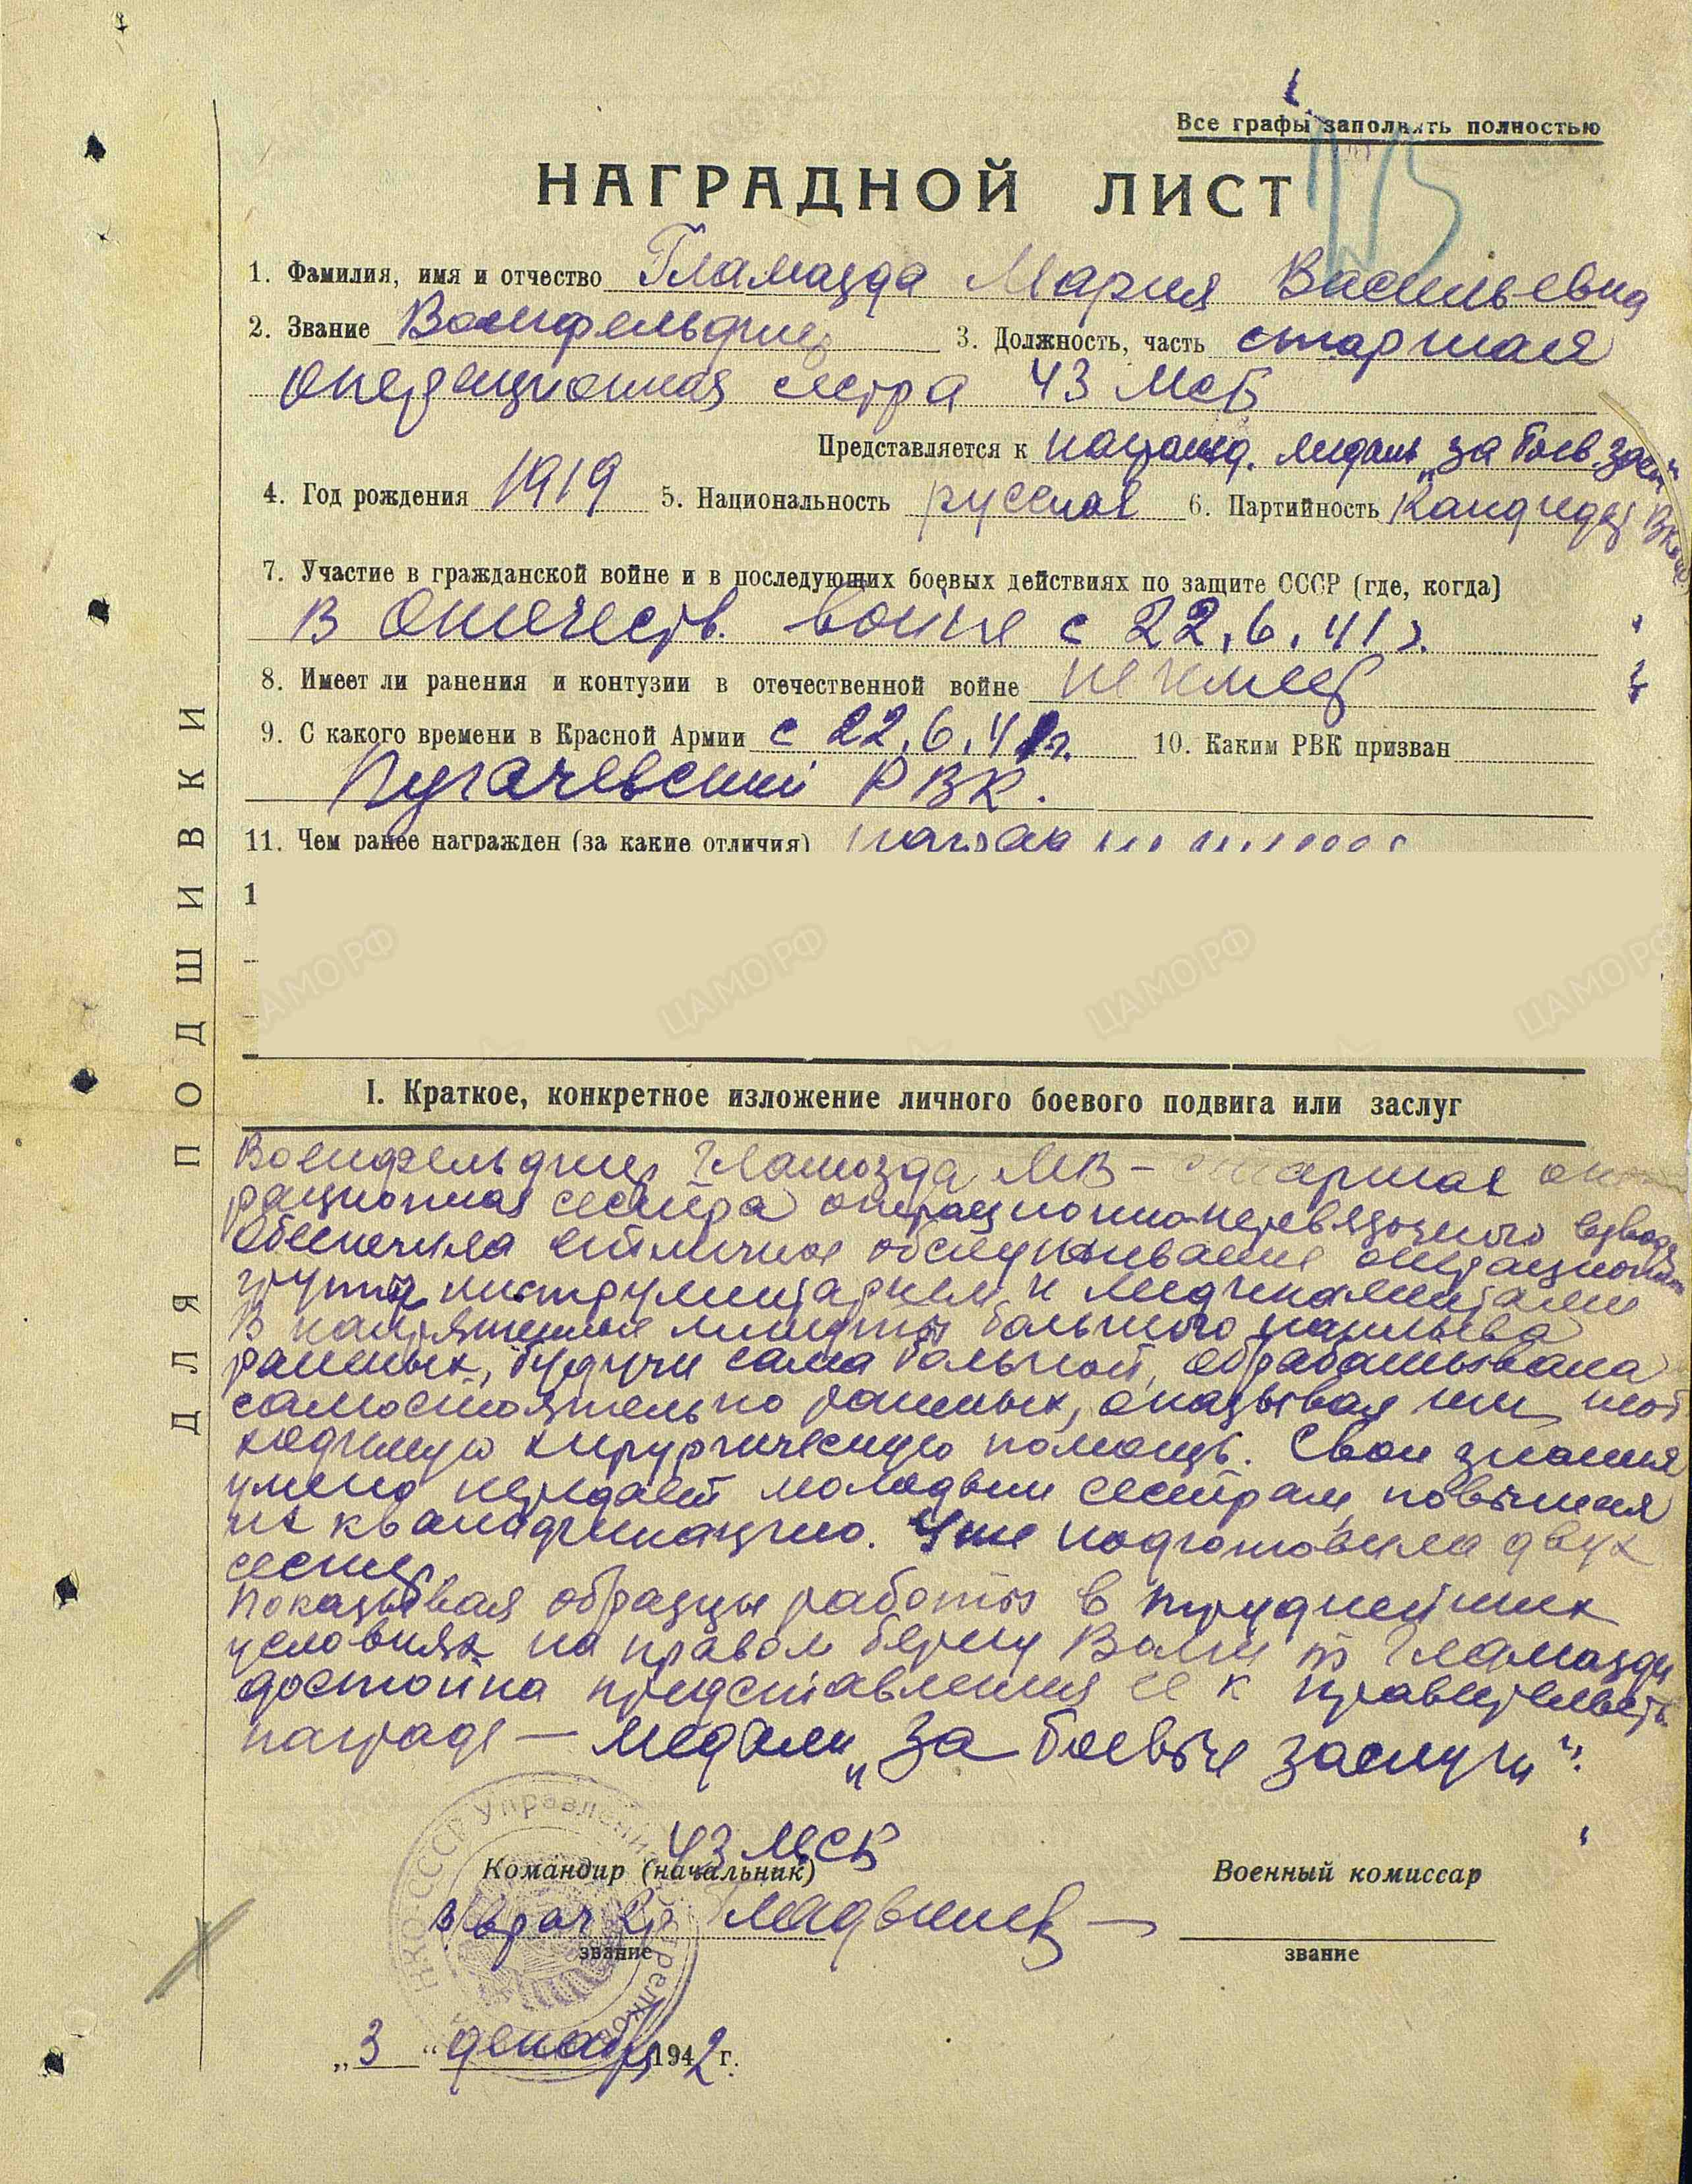 Все графы заполнять полностью
НАГРАДНОЙ ЛИСТ
1. Фамилия, имя и отчество Гламазда Мария Васильевна
2. Звание Военфельдшер 3. Должность, часть старшая
операционная сестра 43 МСБ
Представляется к награжд. медаль „за боев. засл"
4. Год рождения 1919 5. Национальность русская 6. Партийность Кандидат ВКП(б)
7. Участие в гражданской войне и в последующих боевых действиях по защите СССР (где, когда)
В Отечеств. войне с 22.6.41 г.
8. Имеет ли ранения и контузии в отечественной войне не имеет
9. С какого времени в Красной Армии с 22.6.41г. 10. Каким РВК призван
Пугачевский РВК.
11. Чем ранее награжден (за какие отличия) наград не имеет
1
ДЛЯ ПОДШИВКИ
I. Краткое, конкретное изложение личного боевого подвига или заслуг
Военфельдшер Гламозда МВ – старшая опе
рационная сестра операционно-перевязочного взвода
Обеспечила отличное обслуживание операционной
группы инструментарием и медикаментами
В напряженные минуты большого наплыва
раненых, будучи сама больной, обрабатывала
самостоятельно раненых, оказывая им необ
ходимую хирургическую помощь. Свои знания
умело передает молодым сестрам, повышая
их квалификацию. Уже подготовила двух
сестер.
Показывая образцы работы в труднейших
условиях на правом берегу Волги т Гламазда
достойна представления ее к правительств.
награде – медали „За боевые заслуги".
43 МСБ
Командир (начальник) Военный комиссар
в/врач 2р
звание звание
„3" декабря 1942 г.
НКО-СССР Управление
ЦАМО РФ